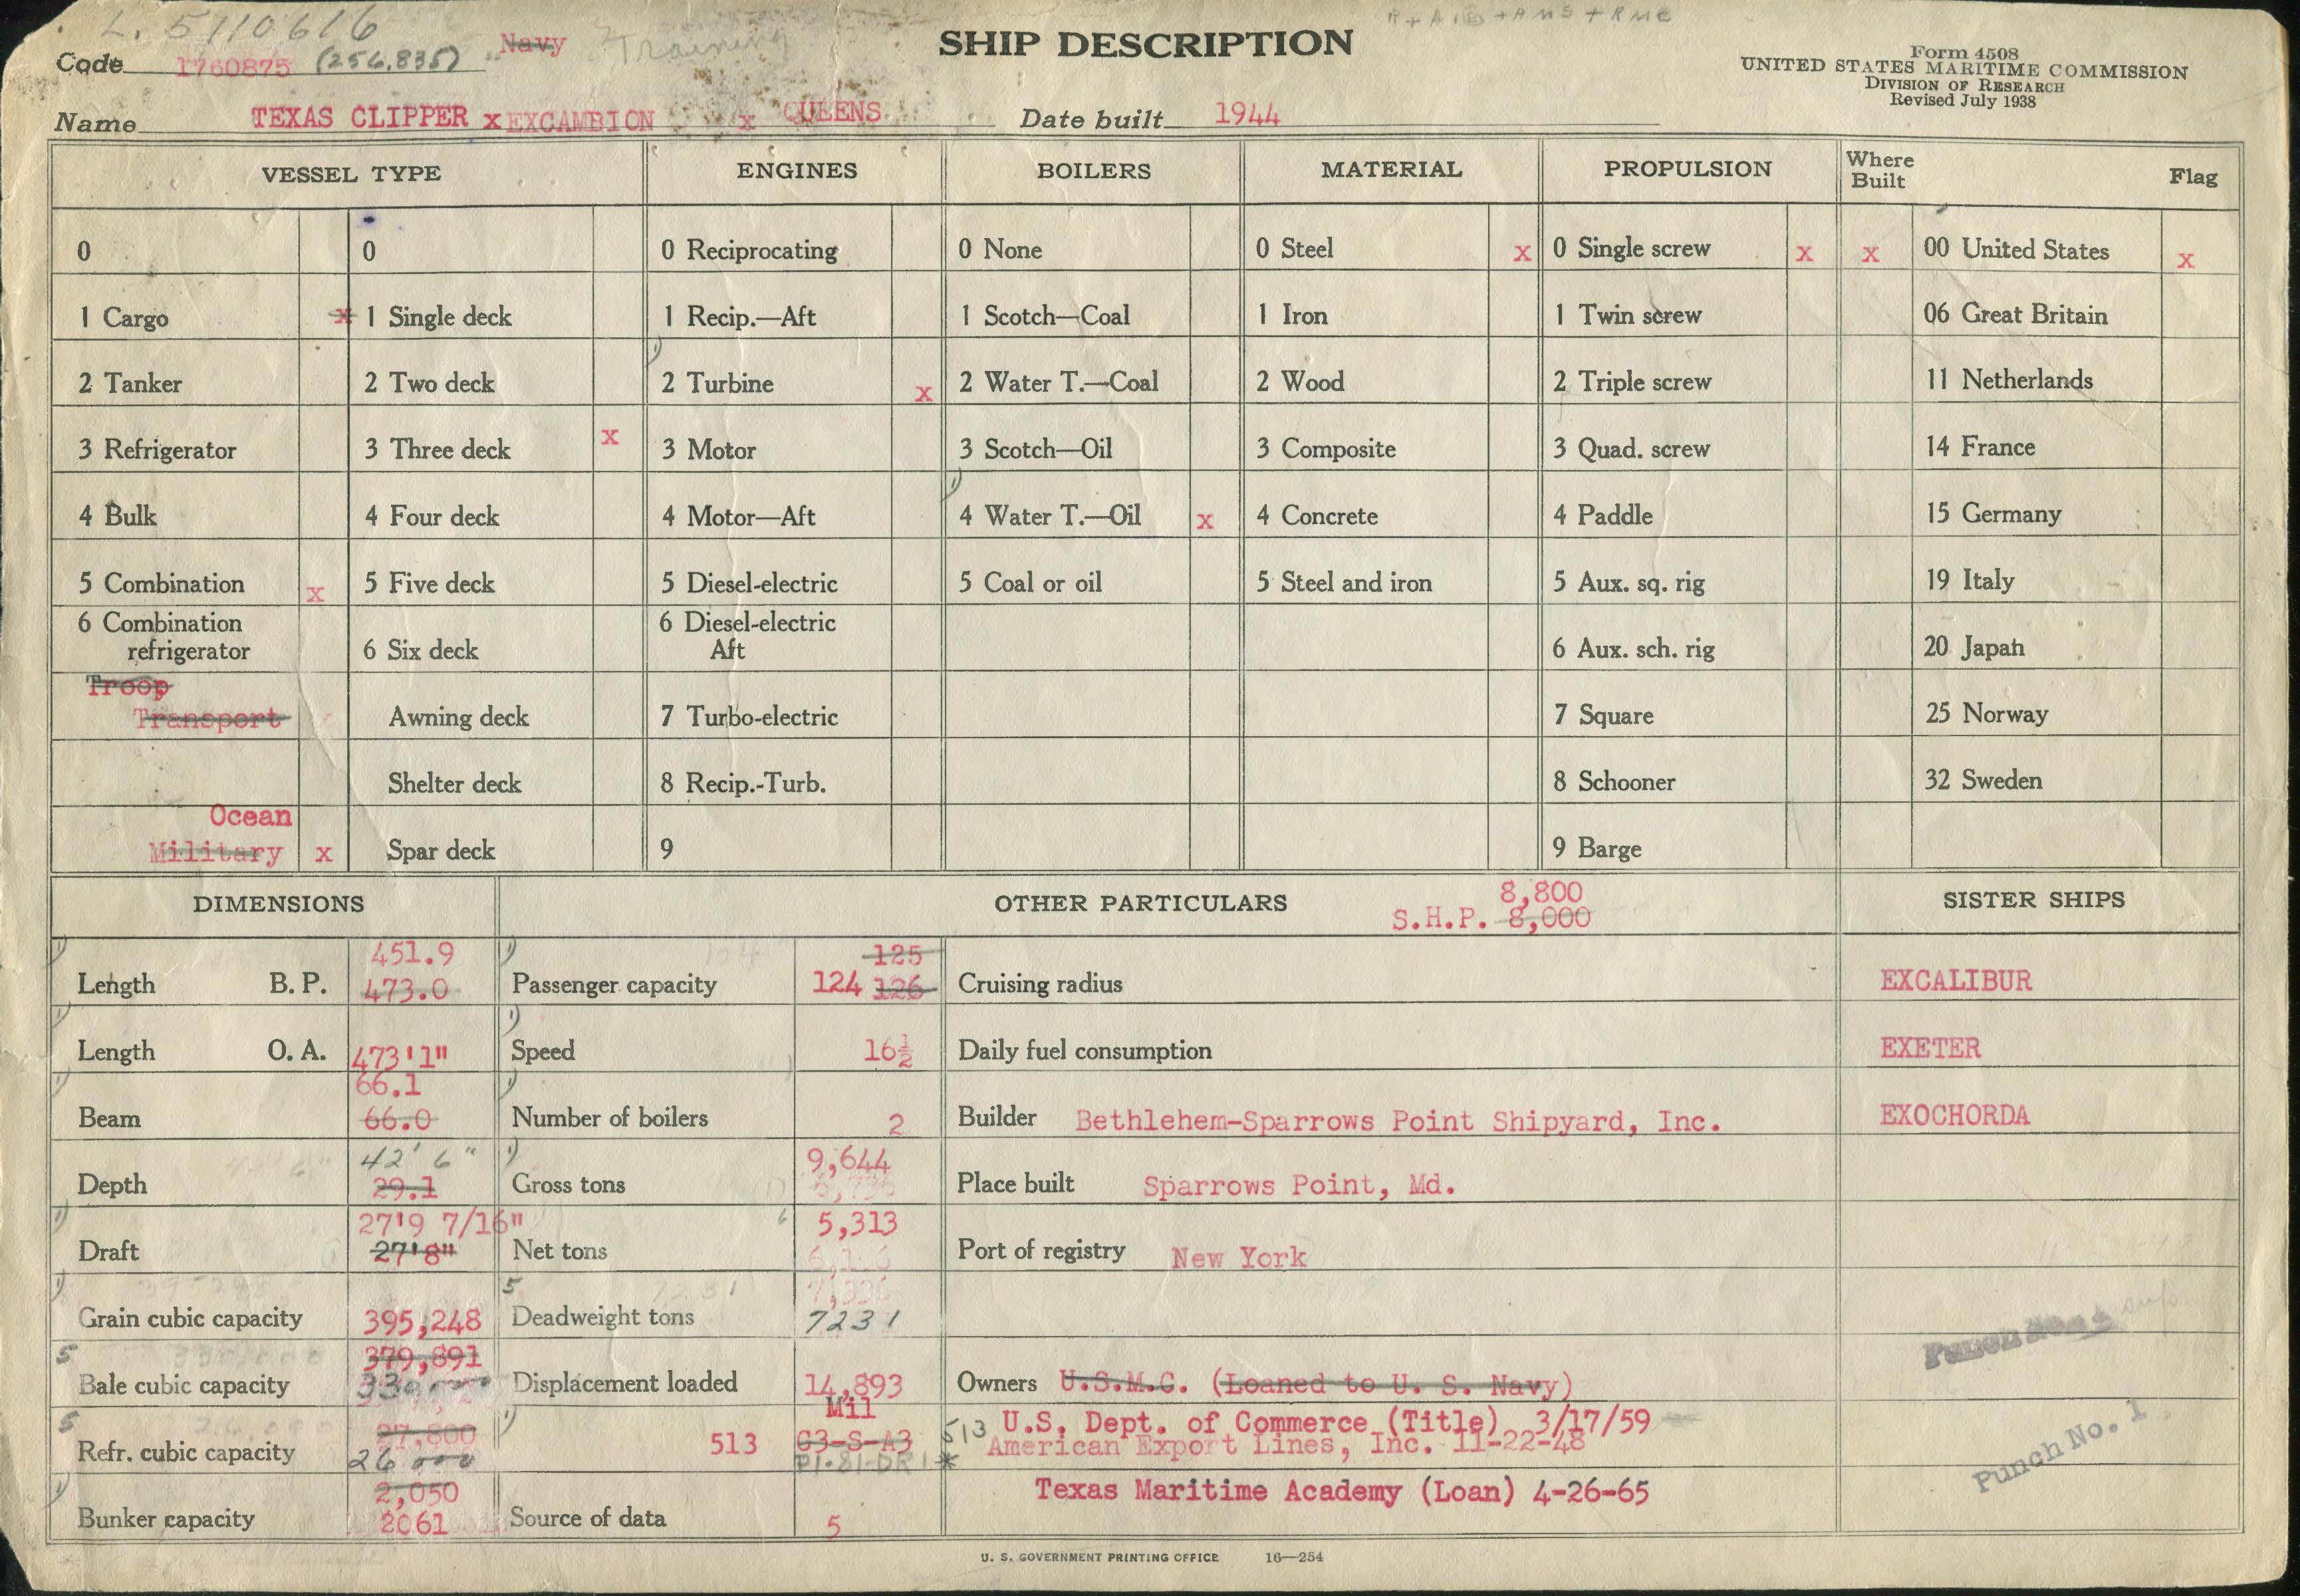 L. 5110616
Navy Training
SHIP DESCRIPTION
Form 4508
UNITED STATES MARITIME COMMISSION
DIVISION OF RESEARCH
Revised July 1938
Code 1760875 (256,835)
Name TEXAS CLIPPER x EXCAMBION x QUEENS Date built 1944
VESSEL TYPE ENGINES BOILERS MATERIAL PROPULSION Where Built Flag
0 0 0 Reciprocating 0 None 0 Steel x 0 Single screw x x 00 United States x
1 Cargo x 1 Single deck 1 Recip.—Aft 1 Scotch—Coal 1 Iron 1 Twin screw 06 Great Britain
2 Tanker 2 Two deck 2 Turbine x 2 Water T.—Coal 2 Wood 2 Triple screw 11 Netherlands
3 Refrigerator 3 Three deck x 3 Motor 3 Scotch—Oil 3 Composite 3 Quad. screw 14 France
4 Bulk 4 Four deck 4 Motor—Aft 4 Water T.—Oil x 4 Concrete 4 Paddle 15 Germany
5 Combination x 5 Five deck 5 Diesel-electric 5 Coal or oil 5 Steel and iron 5 Aux. sq. rig 19 Italy
6 Combination refrigerator 6 Six deck 6 Diesel-electric Aft 6 Aux. sch. rig 20 Japan
Troop Transport Awning deck 7 Turbo-electric 7 Square 25 Norway
Shelter deck 8 Recip.-Turb. 8 Schooner 32 Sweden
Ocean
Military x Spar deck 9 9 Barge
DIMENSIONS OTHER PARTICULARS S.H.P. 8,000 8,800 SISTER SHIPS
451.9 125
Length B. P. 473.0 Passenger capacity 124 126 Cruising radius EXCALIBUR
Length O. A. 473'1" Speed 16½ Daily fuel consumption EXETER
66.1
Beam 66.0 Number of boilers 2 Builder Bethlehem-Sparrows Point Shipyard, Inc. EXOCHORDA
42' 6" 9,644
Depth 29.1 Gross tons Place built Sparrows Point, Md.
27'9 7/16" 5,313
Draft 27'8" Net tons Port of registry New York
Grain cubic capacity 395,248 5 Deadweight tons 7231
379,891
5 Bale cubic capacity Displacement loaded 14,893 Owners U.S.M.C. (Loaned to U. S. Navy)
27,800 Mil 513 U.S. Dept. of Commerce (Title) 3/17/59
5 Refr. cubic capacity 26 000 513 C3-S-A3 American Export Lines, Inc. 11-22-48
P1-S1-DR1*
2,050 Texas Maritime Academy (Loan) 4-26-65
Bunker capacity 2061 Source of data 5
Punch No. 1
U. S. GOVERNMENT PRINTING OFFICE 16—254